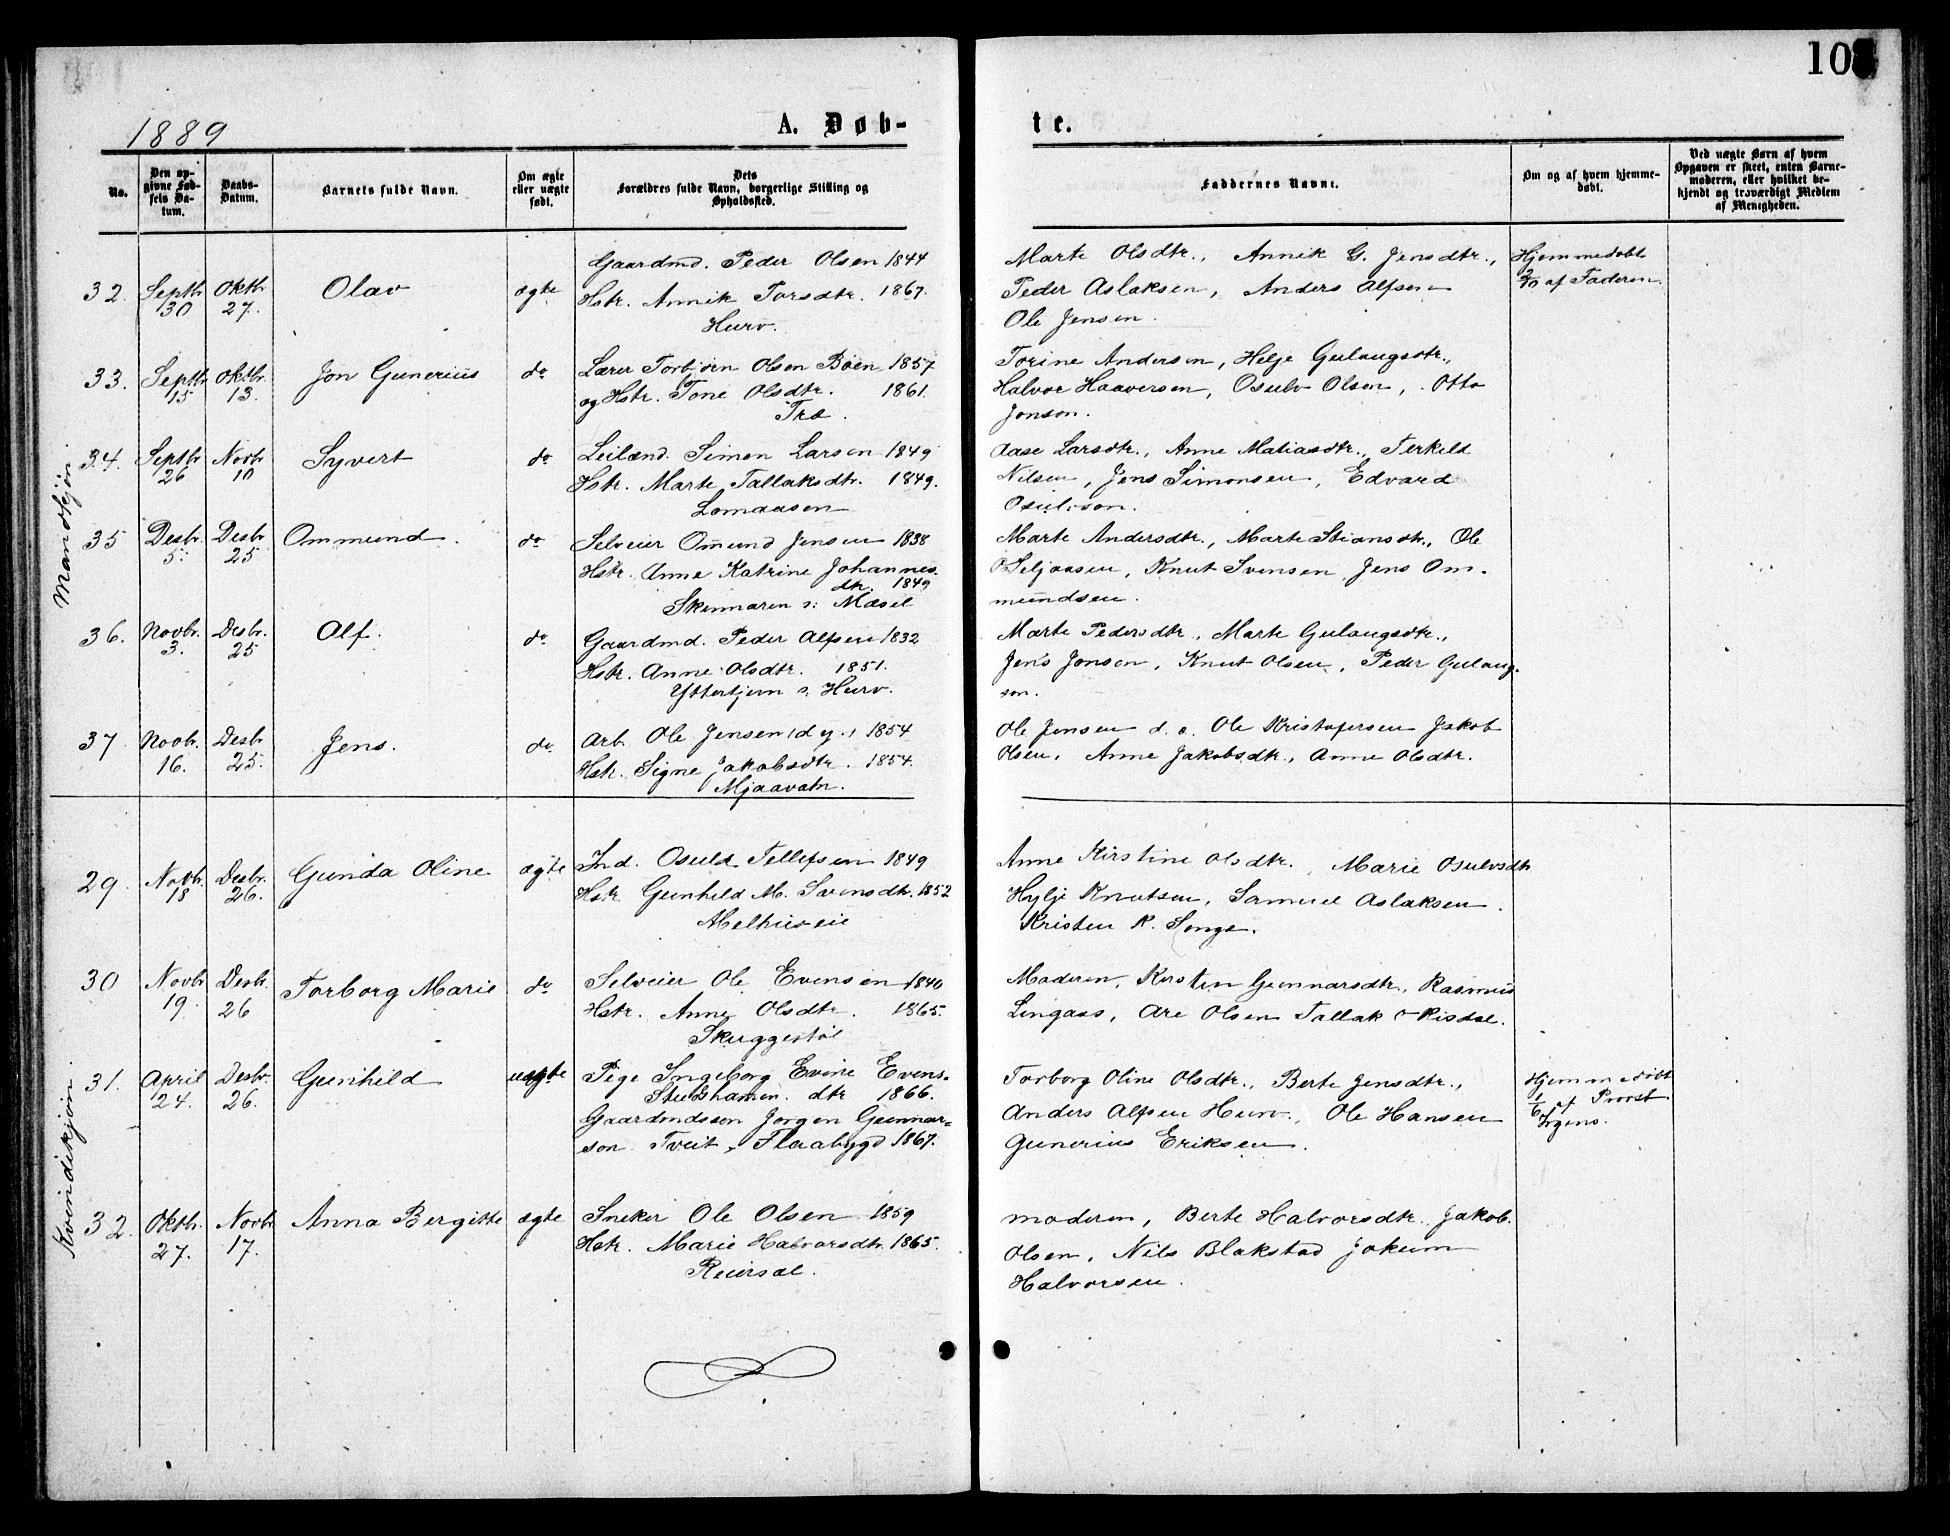 10
1889
A. Døb-
te.
No.
Den op-
givne Fød-
sels Da-
tum.
Daabs-
Datum.
Barnets fulde Navn.
Om ægte
eller uægte
født.
Dets
Forældres fulde Navn, borgerlige Stilling og
Opholdssted.
Faddernes Navne.
Om og af hvem hjemme-
døbt.
Ved uægte Børn af hvem
Opgaven er skeet, enten Barne-
moderen, eller hvilket be-
kjendt og troværdigt Medlem
af Menigheden.
Mandkjøn.
32. Septbr. 30 Oktbr. 27. Olav ægte
Gaardmd. Peder Olsen 1844
Hstr. Annik Torsdtr. 1867.
Hurv.
Marte Olsdtr., Annik G. Jensdtr.,
Peder Aslaksen, Anders Alfsen
Ole Jensen.
Hjemmedøbt
2/10 af Faderen.
33. Septbr. 15 Oktbr. 13. Jon Gunerius do
Lærer Torbjørn Olsen Bøen 1857
og Hstr. Tone Olsdtr. 1861.
Træ.
Torine Andersen, Helje Gulaugsdtr.,
Halvor Haaversen, Osulv Olsen, Otto
Jonson.
34. Septbr 26 Novbr 10 Syvert do
Leilænd. Simon Larsen 1849
Hstr. Marte Tallaksdtr. 1849.
Lomdasen
Aase Larsdtr., Anne Matiasdtr., Terkeld
Nilsen, Jens Simonsen, Edvard
Osulvson.
35 Desbr. 5. Desbr 25 Ommund. do
Selveier Omund Jensen 1838
Hstr. Anne Katrine Johannes-
dtr. 1849
Skinmaren s: Mæsel
Marte Andersdtr., Marte Stiansdtr., Ole
O Seljaasen, Knut Svensen, Jens Om-
mundsen.
36. Novbr. 3. Desbr. 25 Alf. do
Gaardmd. Peder Alfsen 1832
Hstr. Anne Olsdtr. 1851.
Yttertjern s: Hurv.
Marte Pedersdtr, Marte Gulaugsdtr.,
Jens Jonson, Knut Olsen, Peder Gulaug-
son.
37 Novbr. 16. Desbr 25. Jens. do
Arb. Ole Jensen, d. y., 1854
Hstr. Signe Jakobsdtr. 1854.
Mjaavatn.
Ole Jensen d. e. Ole Kristofersen Jakob
Olsen, Anne Jakobsdtr., Anne Olsdtr.
Kvindekjøn.
29. Novbr. 18 Desbr. 26. Gunda Oline ægte
Ind. Osuld Tellefsen 1849
Hstr. Gunhild M. Svensdtr. 1852
Melhuseie
Anne Kirstine Olsdtr., Marie Osulvsdtr
Hylje Knutsen, Samuel Aslaksen.
Kristen K. Songe.
30 Novbr 19. Desbr. 26 Torborg Marie do
Selveier Ole Evensen 1840
Hstr. Anne Olsdtr. 1865.
Skuggestøl
Moderen, Kirsten Gunnarsdtr., Rasmus
Lingaas, Are Olsen Tallak O Risdal.
31. April 24. Desbr. 26. Gunhild uægte
Pige Ingeborg Evine Evens-
Stubshamen. dtr 1866.
Gaardmdssøn Jørgen Gunnar-
son Tveit, Flaabygd 1867.
Torborg Oline Olsdtr., Berte Jensdtr.,
Anders Alfsen Hurv, Ole Hansen
Gunerius Eriksen.
Hjemmedøbt
1/6 af Provst
Ørgens.
32. Oktbr. 27. Novbr 17. Anna Bergitte ægte
Sneker Ole Olsen 1859
Hstr. Marie Halvorsdtr. 1865.
Reiersøl.
Moderen, Berte Halvorsdtr., Jakob
Olsen, Nils Blakstad Jokum
Halvorsen.